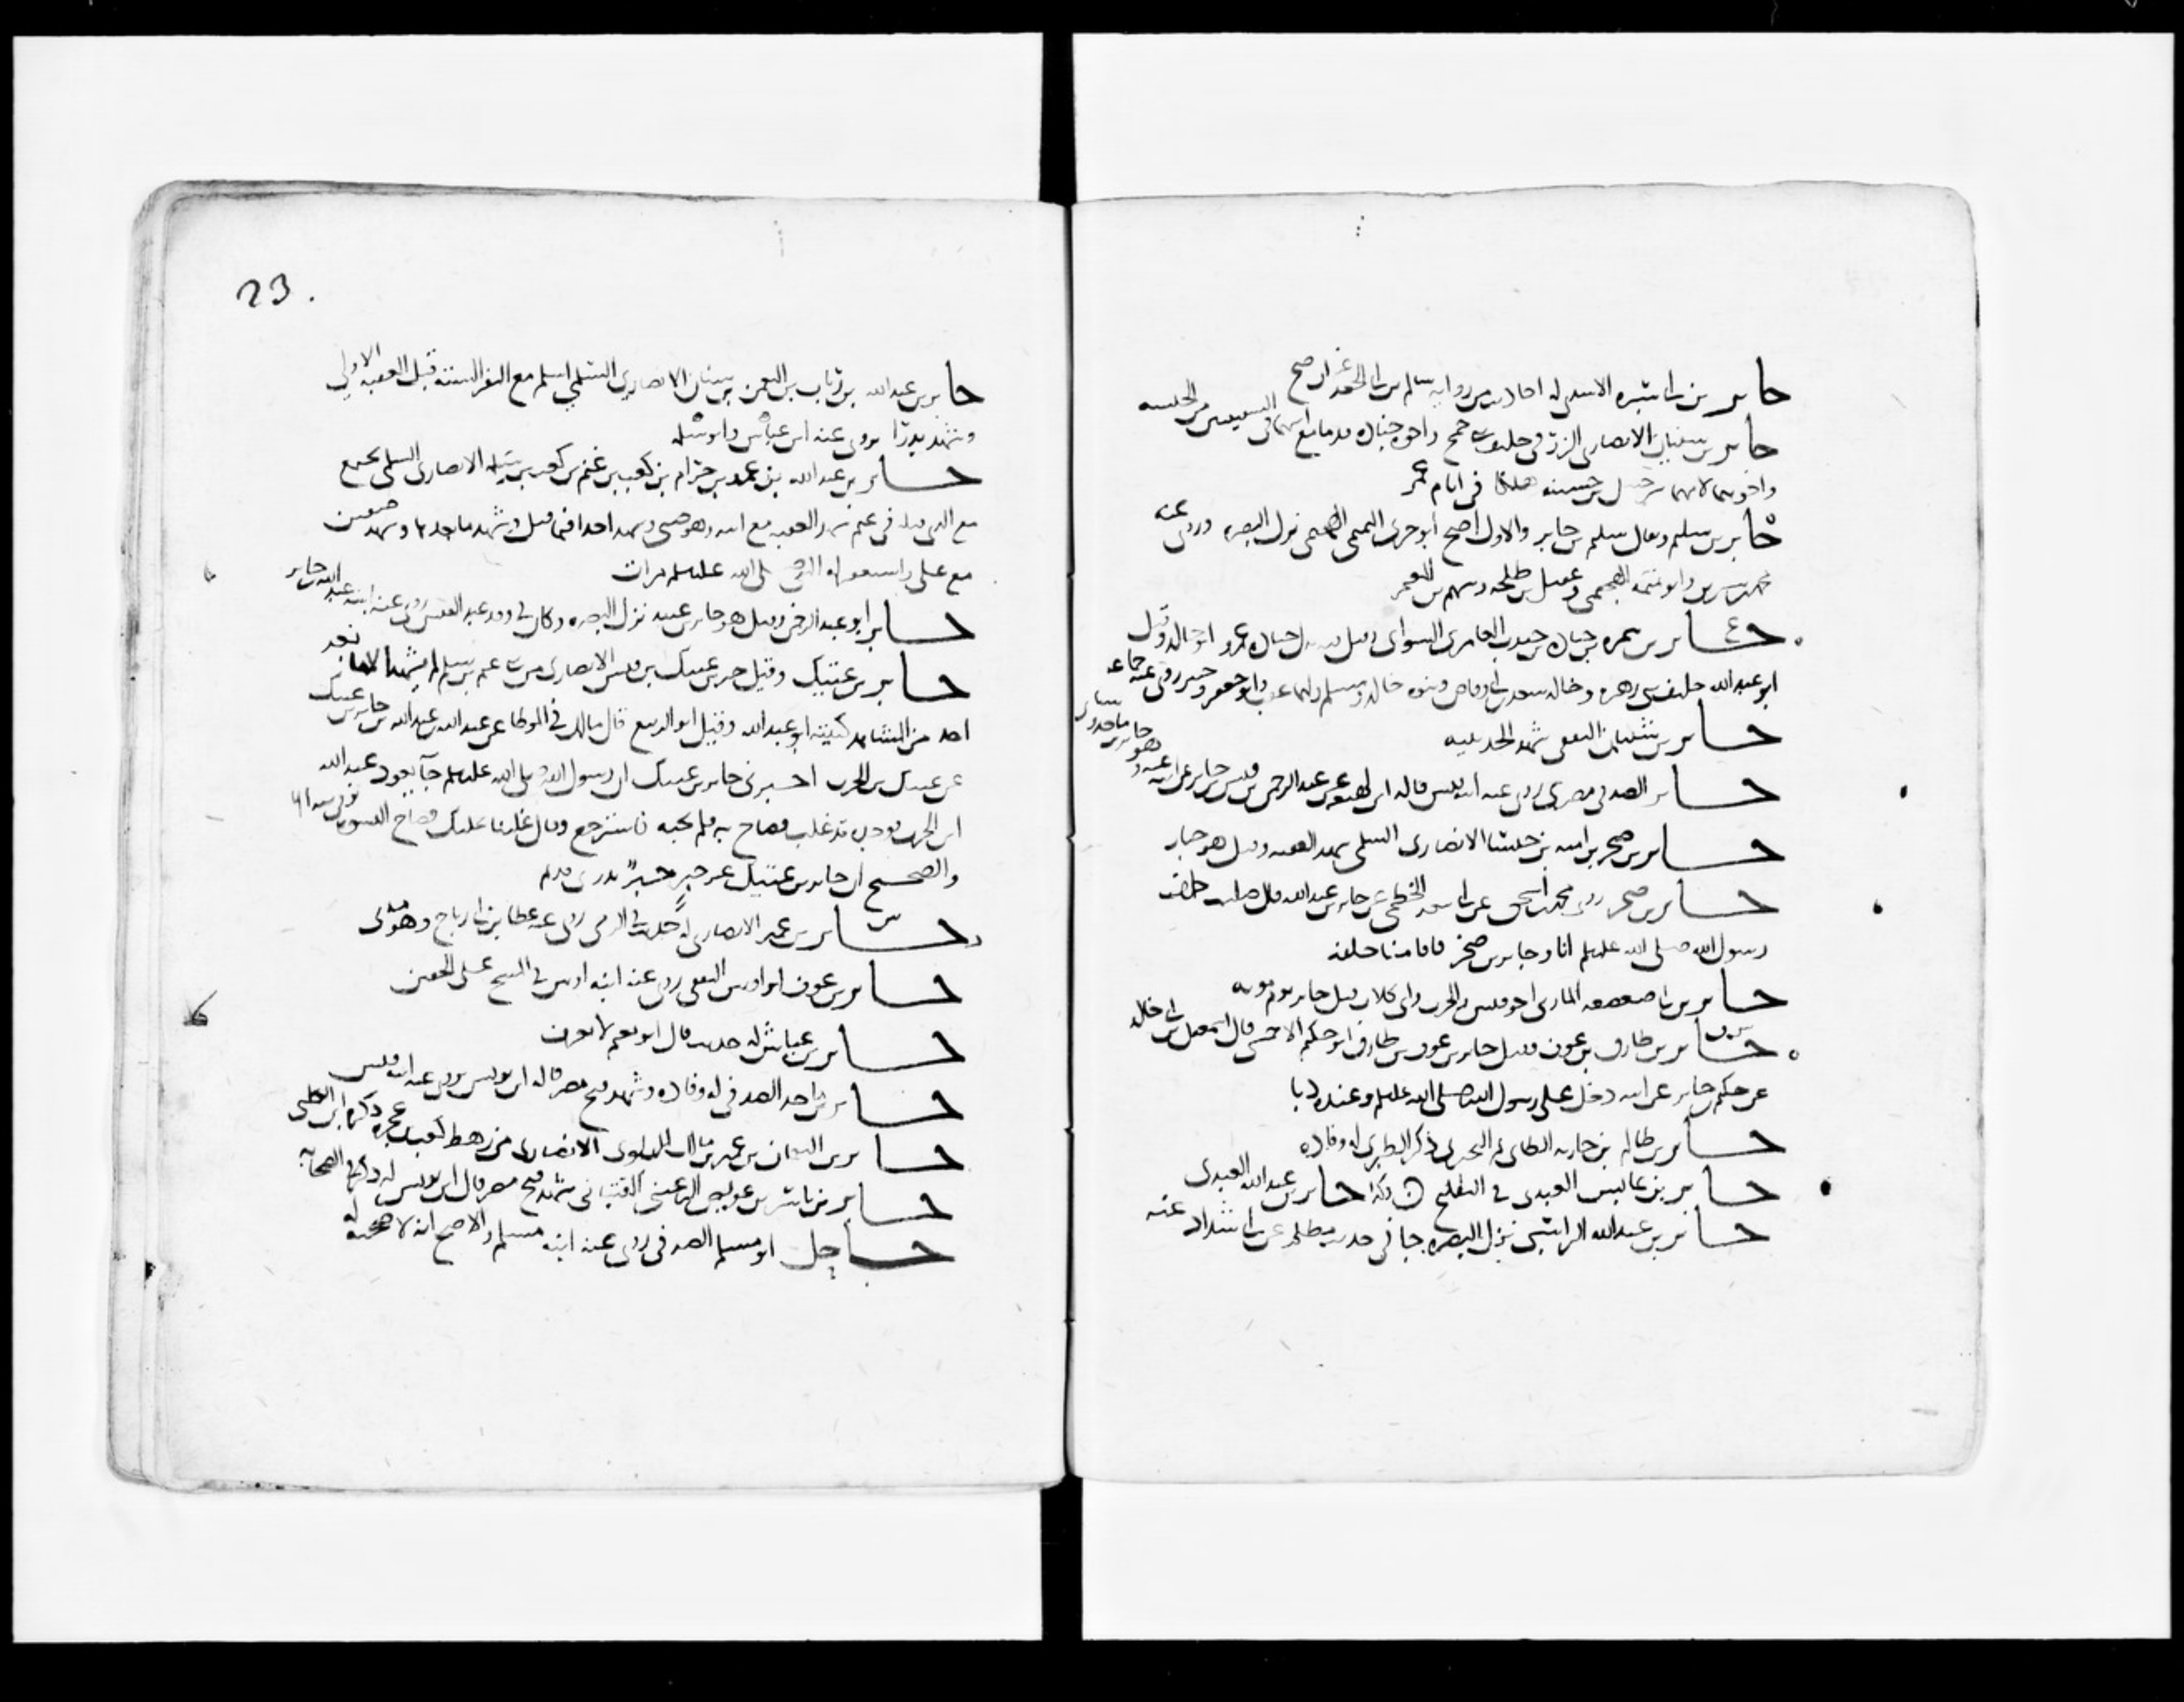 جابر بن ابي سبره الاسدي له احاديث من رواية سالم بن ابي الجعد
جابر بن سفيان الانصاري الزرقي حليف جمح واخوه جناده قدما مع ابيهما في السفينتين من الحبشه
واخوهما لامهما شرحبيل بن حسنه هلكا في ايام عمر
جابر بن سليم ويقال سليم بن جابر والاول اصح ابو جري التميمي الهجيمي نزل البصره وروى عنه
محمد بن سيرين وابو تميمه الهجيمي وعقيل بن طلحه وسهم بن المعتمر
جابر بن سمره بن جناده بن جندب العامري السوائي وقيل عمرو ابو خالد وقيل
ابو عبد الله حليف بني زهره وخاله سعد بن ابي وقاص وبنوه خالد ومسلم وابو جعفر وجبير روى عنه جماعه
جابر بن شيبان الثقفي شهد الحديبيه
جابر الصدفي مصري روى عنه ابنه قيس قاله ابن لهيعه عن عبد الرحمن بن قيس بن جابر عن ابيه عنه
وهو جابر بن ماجد
جابر بن صخر بن اميه بن خنسا الانصاري السلمي شهد العقبه وقيل هو جبار
جابر بن صخر روى محمد بن اسحق عن ابي سعد الخطمي عن جابر بن عبد الله قال صليت خلف
رسول الله صلى الله عليه وسلم انا وجابر بن صخر فاقامنا خلفه
جابر بن ابي صعصعه المازني اخو قيس والحرث وابي كلاب قتل جابر يوم موته
جابر بن طارق بن عوف وقيل جابر بن عوف بن طارق ابو حكيم الاحمسي قال اسمعيل بن ابي خالد
عن حكيم بن جابر عن ابيه دخل على رسول الله صلى الله عليه وسلم وعنده دبا
جابر بن ظالم بن حارثه الطائي ثم البحتري ذكر الطبري له وفاده
جابر بن عابس العبدي في التلقيح وكذا جابر بن عبد الله العبدي
جابر بن عبد الله الراسبي نزل البصره جا في حديث مظلم عن ابي شداد عنه
23
جابر بن عبد الله بن رئاب بن النعمن بن سنان الانصاري السلمي اسلم مع النفر الستة قبل العقبه الاولى
وشهد بدرا يروى عنه ابن عباس وابو سلمه
جابر بن عبد الله بن عمرو بن حرام بن كعب بن غنم بن كعب بن سلمه الانصاري السلمي
شهد العقبه مع ابيه وهو صبي وشهد احدا فيما قيل وشهد ما بعدها وشهد صفين
مع علي واستغفر له النبي صلى الله عليه وسلم مرات
جابر ابو عبد الرحمن وقيل هو جابر بن عبيد نزل البصره وكان في وفد عبد القيس روى عنه ابنه عبد الله بن جابر
جابر بن عتيك وقيل جبر بن عتيك بن قيس الانصاري من بني غنم بن سلمه لم يشهد
احد من المشاهد كنيته ابو عبد الله وقيل ابو الربيع قال مالك في الموطا عن عبد الله بن عبد الله بن جابر بن عتيك
عن عتيك بن الحرث اخبرني جابر بن عتيك ان رسول الله صلى الله عليه وسلم جا يعود عبد الله
ابن ثابت فوجده قد غلب فصاح به فلم يجبه فاسترجع وقال غلبنا عليك فصاح النسوه
والصحيح ان جابر بن عتيك غير جبر جبر بدري قديم
جابر بن عمير الانصاري له حديث في الرمي روى عنه عطا بن ابي رباح وهو مدني
جابر بن عوف ابو اوس الثقفي روى عنه ابنه اوس في المسح على الخفين
جابر بن عياش له حديث قال ابو نعيم لا يعرف
جابر بن ماجد الصدفي له وفاده وشهد فتح مصر قاله ابن يونس روى عنه ابنه قيس
جابر بن النعمان بن عمير بن مالك البلوي الانصاري من رهط كعب بن عجره ذكره ابن الكلبي
جابر بن ياسر بن عويص الرعيني القتباني شهد فتح مصر قال ابن يونس له ذكر في الصحابه
جاحل ابو مسلم الصدفي روى عنه ابنه مسلم والاصح انه لا صحبة له